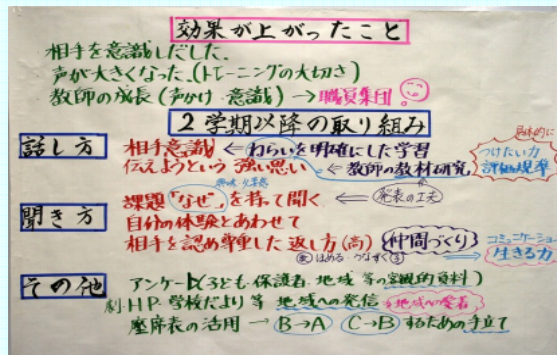 効果が上がったこと
相手を意識しだした.
声が大きくなった.(トレーニングの大切さ)
教師の成長(声かけ 意識) → 職員集団
2学期以降の取り組み
具体的に
話し方 相手意識 ← ねらいを明確にした学習 つけたい力
伝えようという 強い思い ← 教師の教材研究 評価規準
興味・
課題「なぜ」を持って聞く ← 発表の工夫
聞き方 自分の体験とあわせて
相手を認め尊重した返し方(高) 仲間づくり コミュニケーション
ほめる・うなずく 生きる力
その他 アンケート(子ども・保護者・地域 等の客観的資料)
劇・HP・学校だより 等 地域への発信 地域への愛着
座席表の活用 → B→A C→B するための手立て